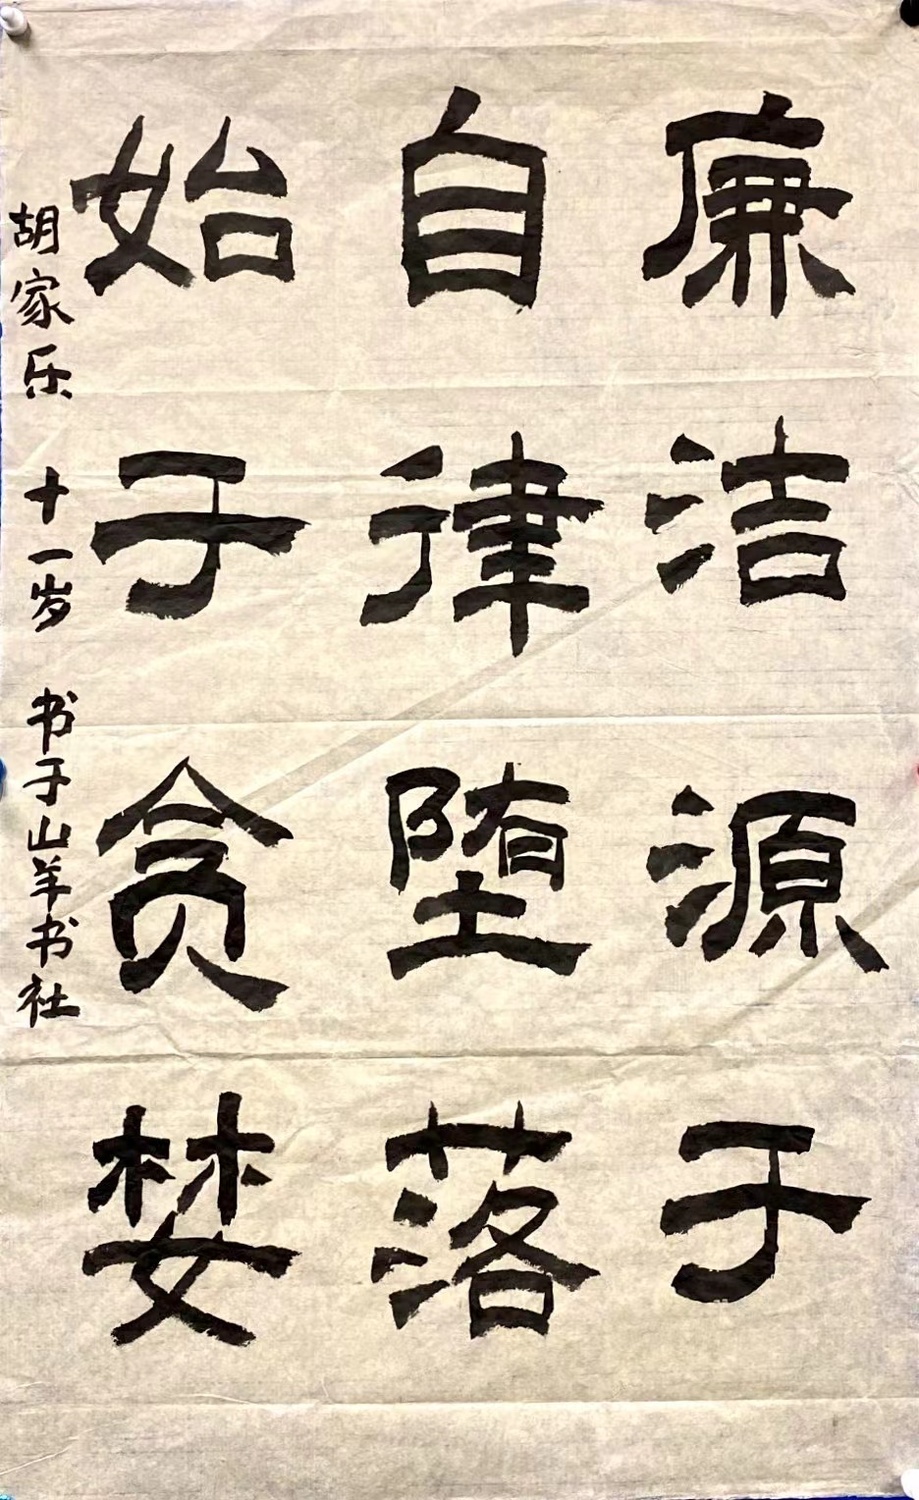 廉洁源于
自律堕落
始于贪婪
胡家乐 十一岁 书于山羊书社